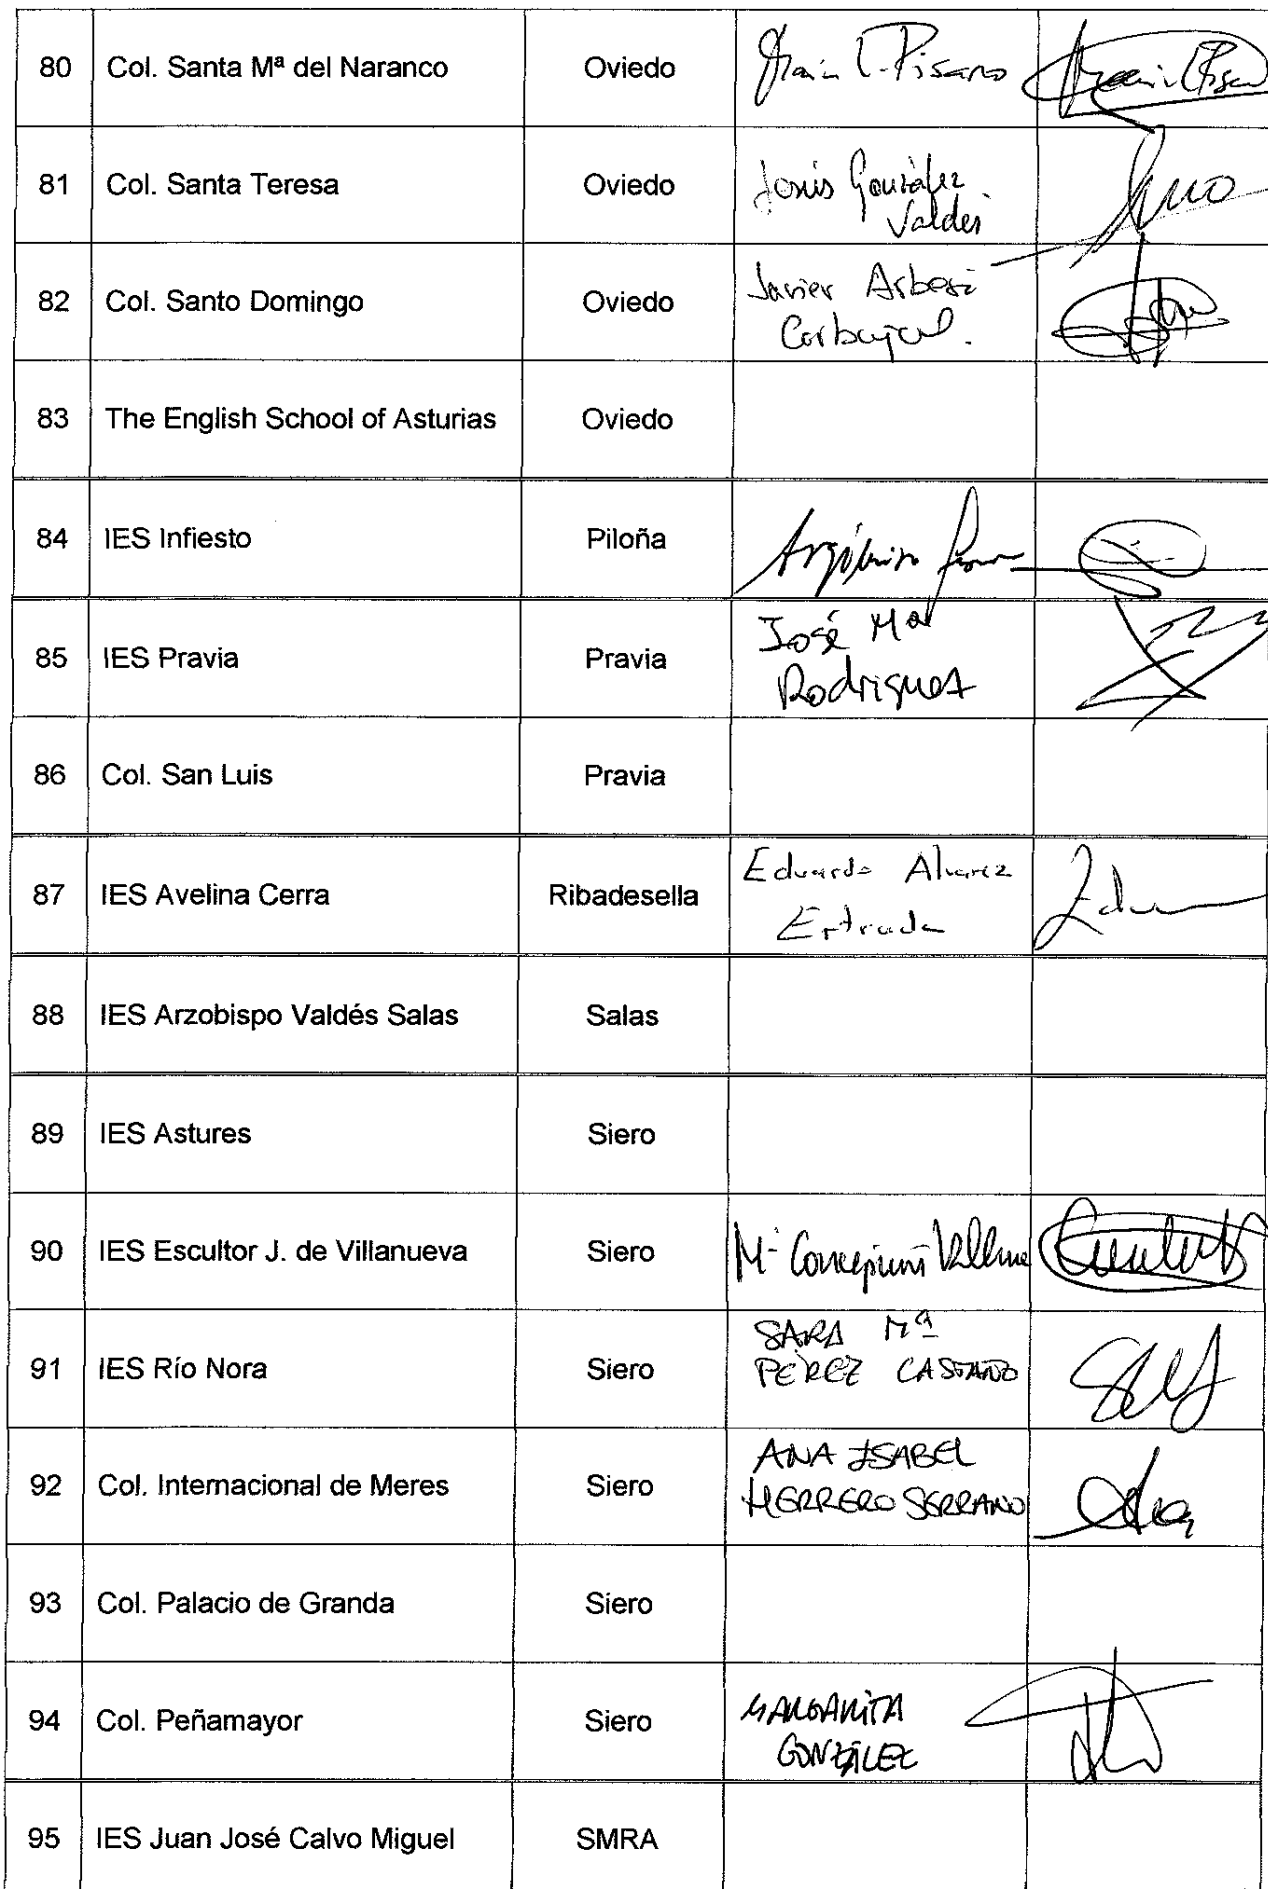 80 Col. Santa Mª del Naranco Oviedo
81 Col. Santa Teresa Oviedo Jesús González
Valdés
82 Col. Santo Domingo Oviedo Javier Arbesú
Carbajal.
83 The English School of Asturias Oviedo
84 IES Infiesto Piloña
85 IES Pravia Pravia José Mª
Rodriguez
86 Col. San Luis Pravia
87 IES Avelina Cerra Ribadesella Eduardo Alvarez
Estrada
88 IES Arzobispo Valdés Salas Salas
89 IES Astures Siero
90 IES Escultor J. de Villanueva Siero Mª Concepción
91 IES Río Nora Siero SARA Mª
PÉREZ CASTAÑO
92 Col. Internacional de Meres Siero ANA ISABEL
HERRERO SERRANO
93 Col. Palacio de Granda Siero
94 Col. Peñamayor Siero MARGARITA
GONZÁLEZ
95 IES Juan José Calvo Miguel SMRA